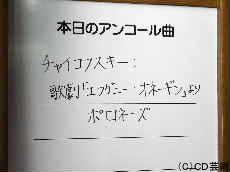 本日のアンコール曲
チャイコフスキー：
歌劇「エフゲニー・オネーギン」より
ポロネーズ
(C)CD芸術